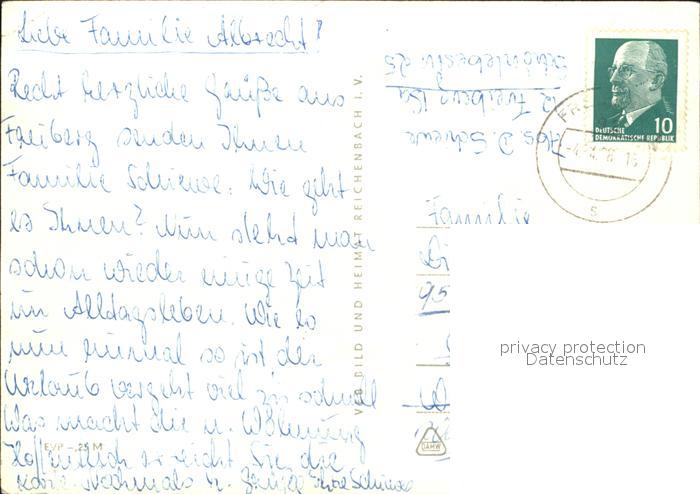 Liebe Familie Albrecht!
Recht herzliche Grüße aus
Freiberg senden Ihnen
Familie Schiewe. Wie geht
es Ihnen? Nun steht man
schon wieder einige Zeit
im Alltagsleben. Wie es
nun einmal so ist der
Urlaub vergeht viel zu schnell
Was macht die n. Wohnung
Hoffentlich erreicht Sie die
Karte. Nochmals h. Grüße Ihre Schiewe
EVP –,25 M
VEB BILD UND HEIMAT REICHENBACH I. V.
Abs. D. Schiewe
92 Freiberg
25
DEUTSCHE
DEMOKRATISCHE REPUBLIK
10
Familie
95
privacy protection
Datenschutz